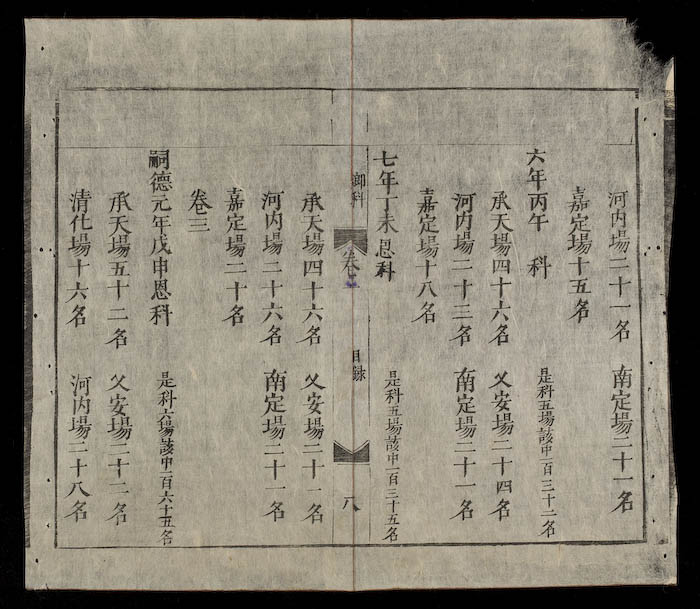 河内場二十一名 南定場二十一名
嘉定場十五名
六年丙午 科 是科五場該中一百三十二名
承天場四十六名 乂安場二十四名
河内場二十三名 南定場二十一名
嘉定場十八名
七年丁未恩科 是科五場該中一百三十五名
鄉科 卷 目錄 八
承天場四十六名 乂安場二十二名
河内場二十六名 南定場二十一名
嘉定場二十名
卷三
嗣德元年戊申恩科 是科六場該中一百六十五名
承天場五十二名 乂安場二十二名
清化場十六名 河内場二十八名